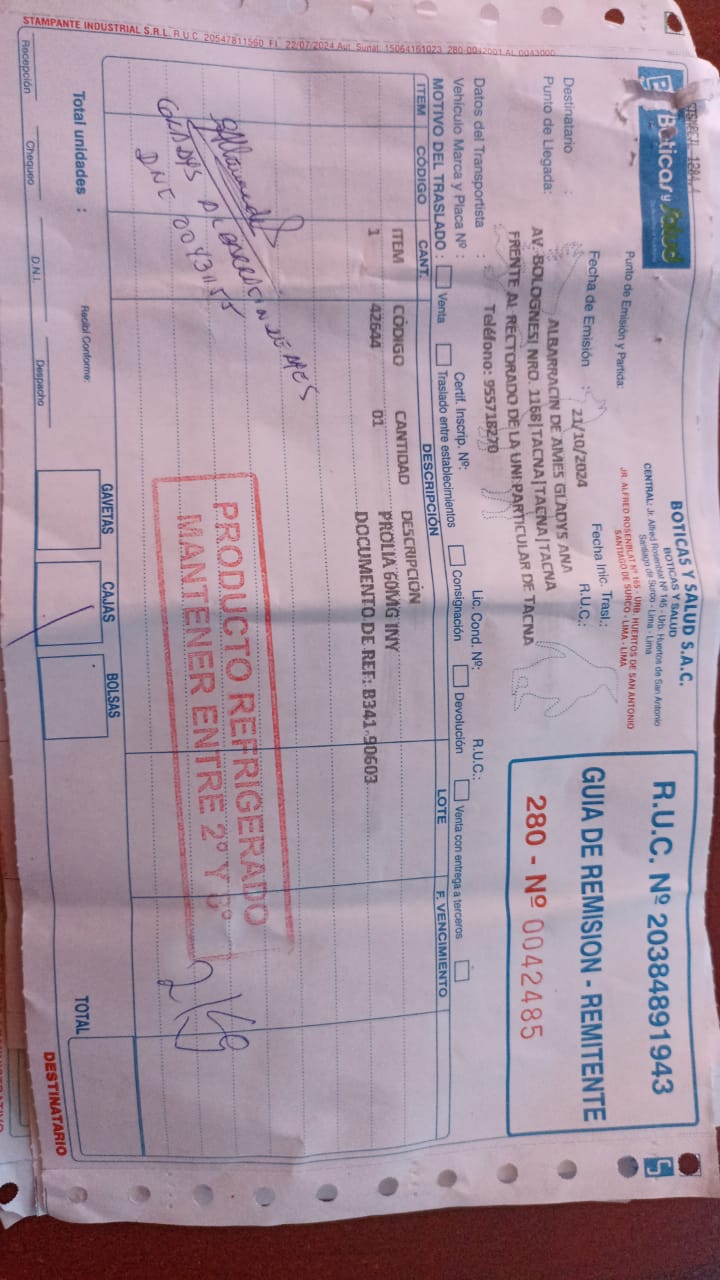 Boticas y Salud
BOTICAS Y SALUD S.A.C.
BOTICAS Y SALUD
CENTRAL: Jr. Alfred Rosenblat Nº 145 - Urb. Huertos de San Antonio
Santiago de Surco - Lima - Lima
Punto de Emisión y Partida:
JR. ALFRED ROSENBLAT Nº 165 - URB. HUERTOS DE SAN ANTONIO
SANTIAGO DE SURCO - LIMA - LIMA
R.U.C. Nº 20384891943
GUIA DE REMISION - REMITENTE
280 - Nº 0042485
Fecha de Emisión : 21/10/2024
Fecha Inic. Trasl.:
Destinatario : ALBARRACIN DE AIMES GLADYS ANA
R.U.C.:
Punto de Llegada: AV. BOLOGNESI NRO. 1168|TACNA|TACNA|TACNA
FRENTE AL RECTORADO DE LA UNI.PARTICULAR DE TACNA
Teléfono: 955718270
Datos del Transportista :
Lic. Cond. Nº:
R.U.C.:
Vehículo Marca y Placa Nº :
Certif. Inscrip. Nº:
MOTIVO DEL TRASLADO : Venta Traslado entre establecimientos Consignación Devolución Venta con entrega a terceros
ITEM CÓDIGO CANT. DESCRIPCIÓN LOTE F. VENCIMIENTO
ITEM CÓDIGO CANTIDAD DESCRIPCIÓN
1 42644 01 PROLIA 60MG INY
DOCUMENTO DE REF: B341-90603
PRODUCTO REFRIGERADO
MANTENER ENTRE 2° Y 8°
GLADYS ALBARRACIN DE AIMES
DNI 00431155
GAVETAS CAJAS BOLSAS TOTAL
Total unidades :
Recibí Conforme:
Recepción Chequeo D.N.I. Despacho
DESTINATARIO
STAMPANTE INDUSTRIAL S.R.L. R.U.C. 20547811560 F.I. 22/07/2024 Aut. Sunat. 15064161023 280-0042001 AL 0043000